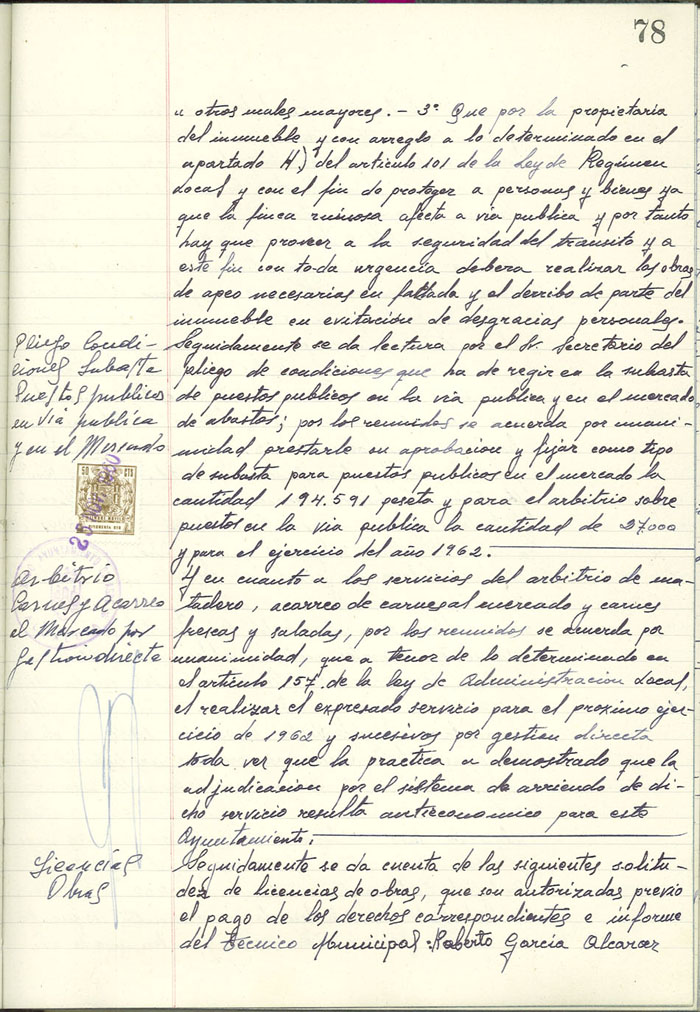 78
u otros males mayores. - 3º Que por la propietaria
del inmueble y con arreglo a lo determinado en el
apartado H) del articulo 101 de la Ley de Regimen
Local y con el fin de proteger a personas y bienes ya
que la finca ruinosa afecta a via publica y por tanto
hay que proveer a la seguridad del transito y a
este fin con toda urgencia debera realizar las obras
de apeo necesarias en fachada y el derribo de parte del
inmueble en evitacion de desgracias personales.
Pliego Condi-
ciones Subasta
Puestos publicos
en via publica
y en el Mercado
Seguidamente se da lectura por el Sr. Secretario del
pliego de condiciones que ha de regir en la subasta
de puestos publicos en la via publica y en el mercado
de abastos; por los reunidos se acuerda por unani-
midad prestarle su aprobacion y fijar como tipo
de subasta para puestos publicos en el mercado la
cantidad 194.591 peseta y para el arbitrio sobre
puestos en la via publica la cantidad de 27.000
y para el ejercicio del año 1962.
50 CTS
Arbitrio
Carnes y Acarreo
el Mercado por
Gestion directa
Y en cuanto a los servicios del arbitrio de ma-
tadero, acarreo de carnes al mercado y carnes
frescas y saladas, por los reunidos se acuerda por
unanimidad, que a tenor de lo determinado en
el articulo 157 de la ley de Administracion Local,
el realizar el expresado servicio para el proximo ejer-
cicio de 1962 y sucesivos por gestion directa
toda ver que la practica a demostrado que la
adjudicacion por el sistema de arriendo de di-
cho servicio resulta antieconomico para este
Ayuntamiento.
Licencias
Obras
Seguidamente se da cuenta de las siguientes solitu-
dez de licencias de obras, que son autorizadas previo
el pago de los derechos correspondientes e informe
del Tecnico Municipal: Roberto Garcia Alcaraz